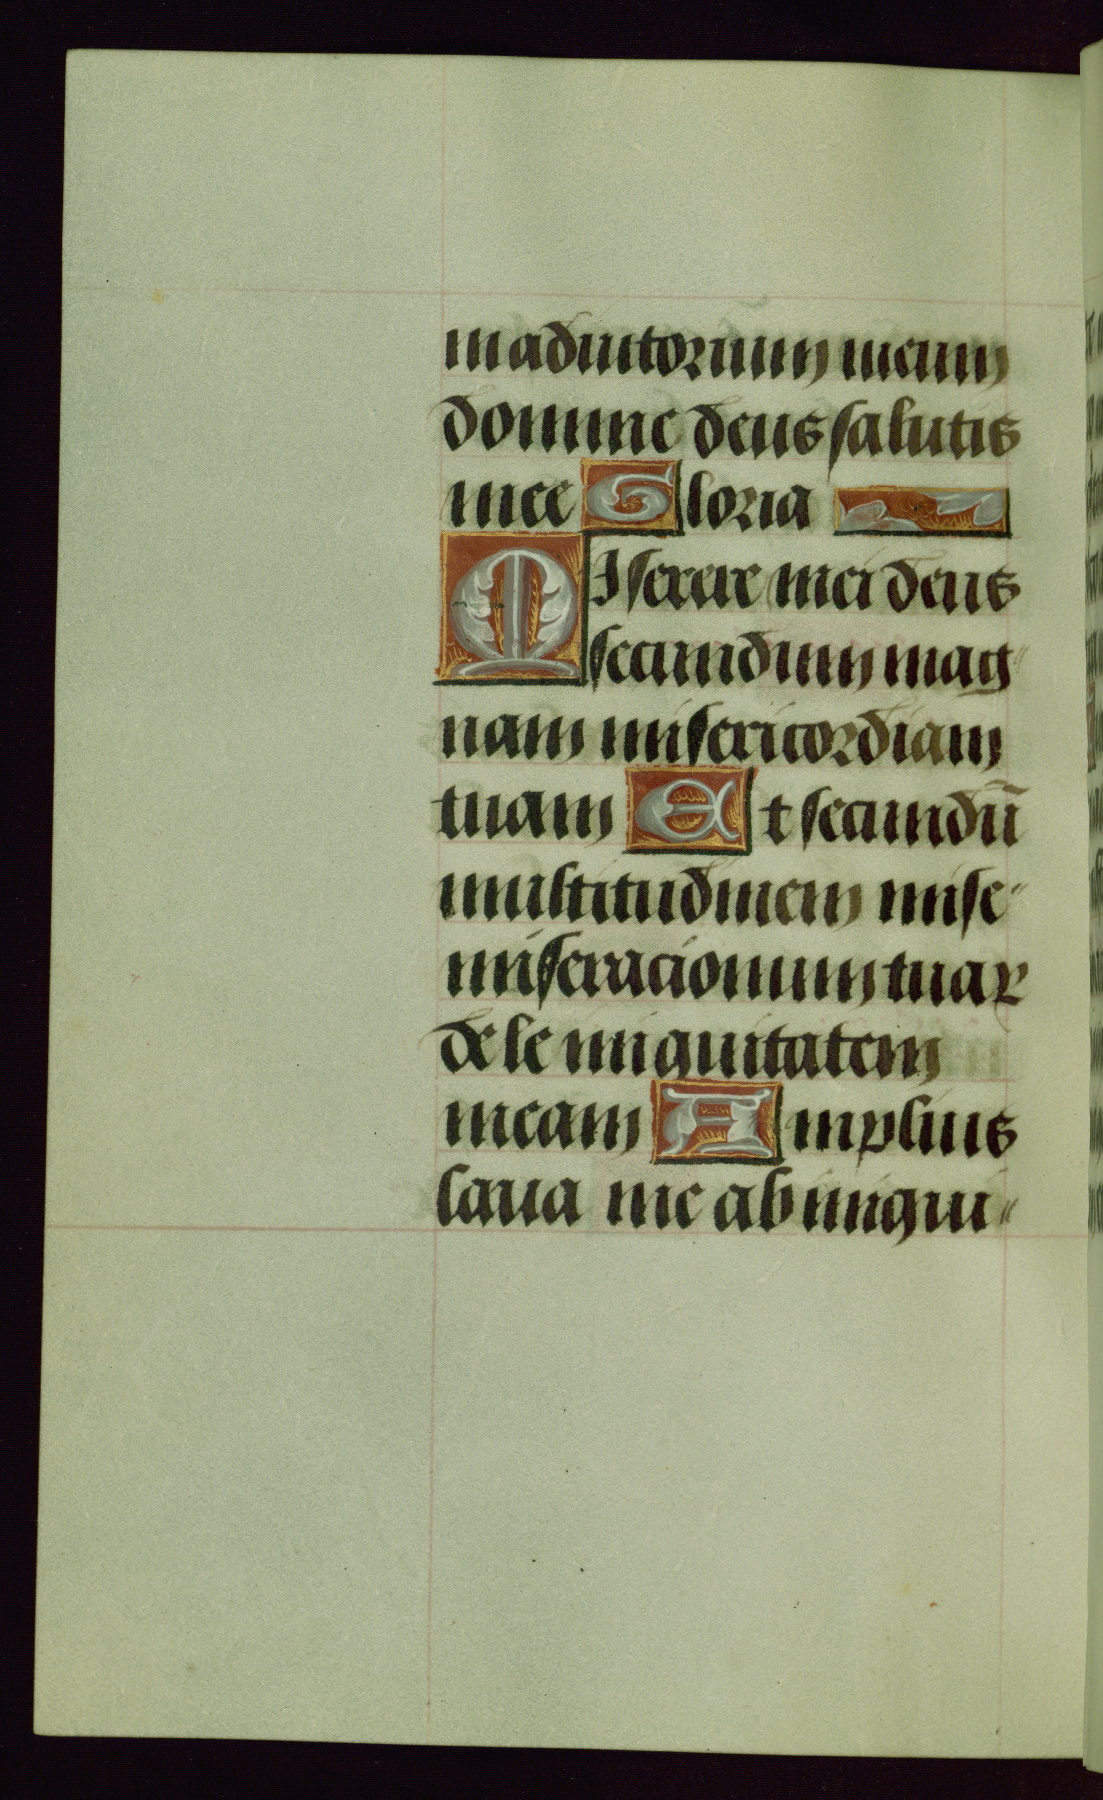 in adiutorium meum
domine deus salutis
mee Gloria
MIserere mei deus
secundum mag"
nam misericordiam
tuam Et secundū
multitudinem mise"
miseracionum tuaꝝ
dele iniquitatem
meam Amplius
laua me ab iniqui"